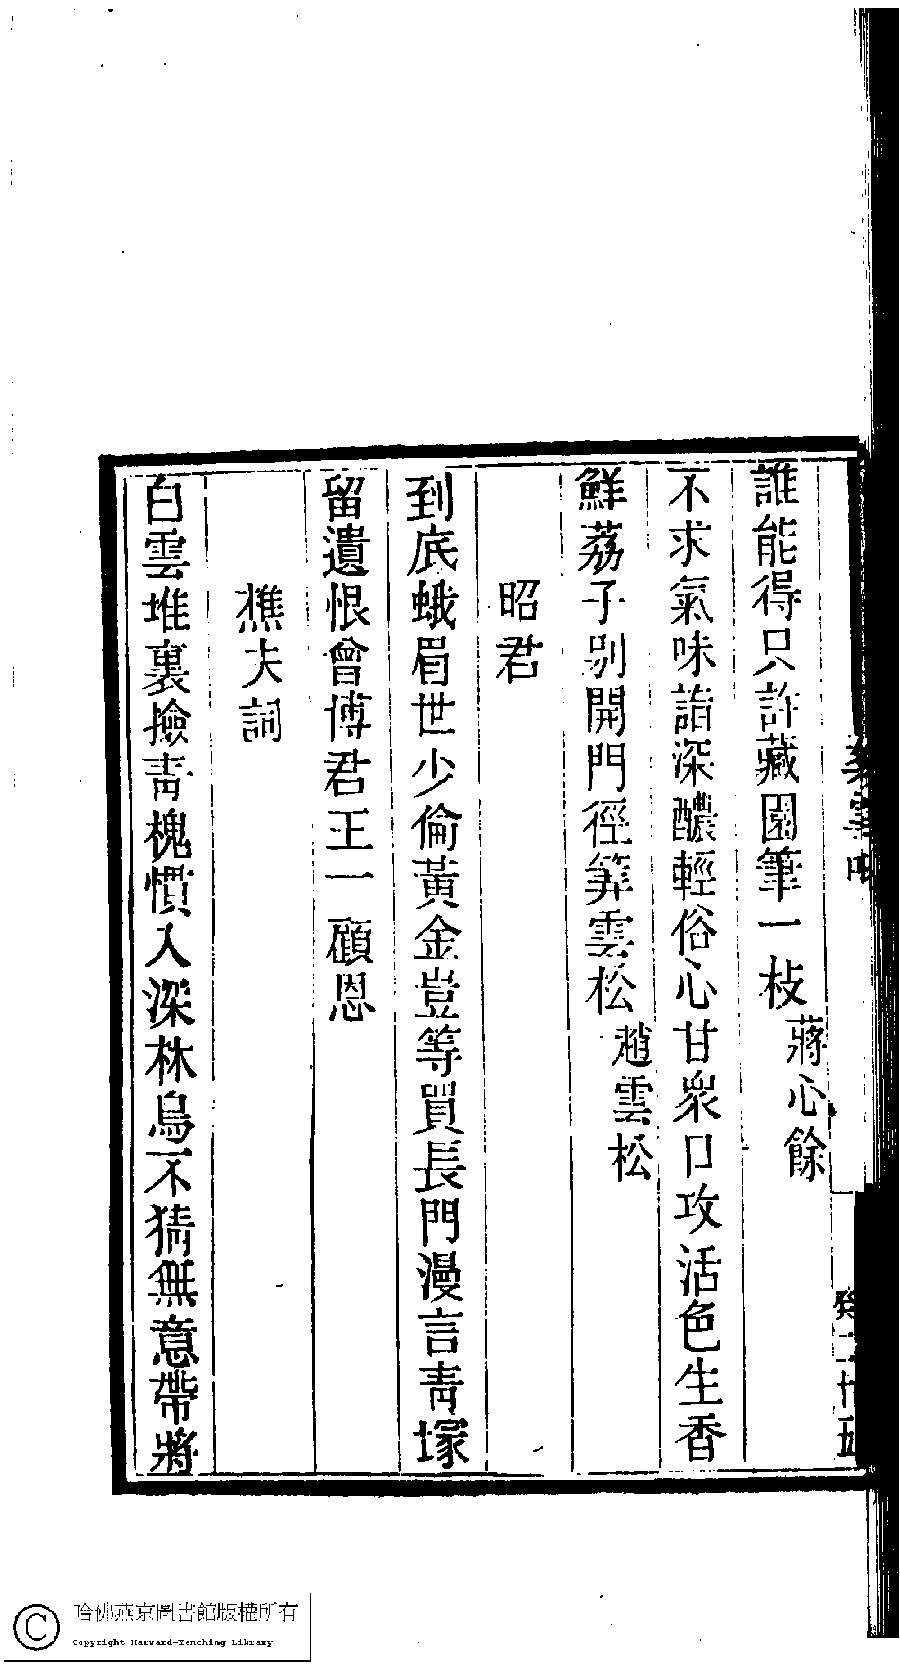 誰能得只許藏園筆一枝 蔣心餘
不求氣味詣深醲輕俗心甘衆口攻活色生香
鮮荔子別開門徑筭雲松 趙雲松
昭君
到底蛾眉世少倫黃金豈等買長門漫言青塚
留遺恨曾博君王一顧恩
樵夫詞
白雲堆裏撿青槐慣入深林鳥不猜無意帶將
哈佛燕京圖書館版權所有
Copyright Harvard-Yenching Library